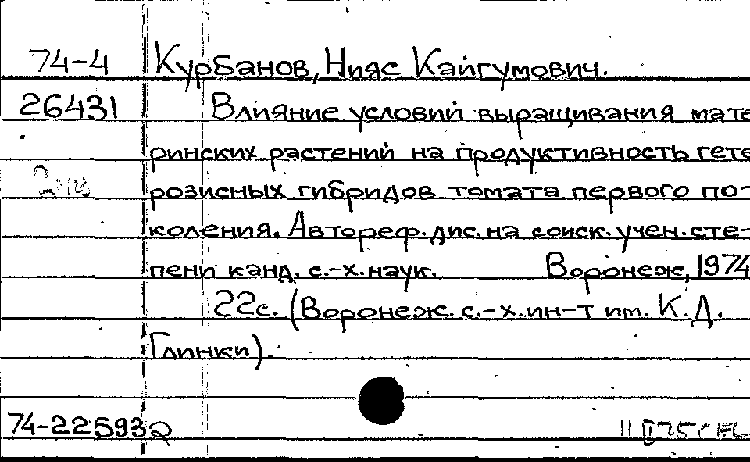 74-4 Курбанов, Нияс Кайгумович.
26431 Влияние условий выращивания мате
ринских растений на продуктивность гете
розисных гибридов томата первого по-
коления. Автореф. дис. на соиск. учен. сте-
пени канд. с.-х. наук. Воронеж, 1974
22с. (Воронеж. с.-х. ин-т им. К.Д.
Глинки).
74-22593